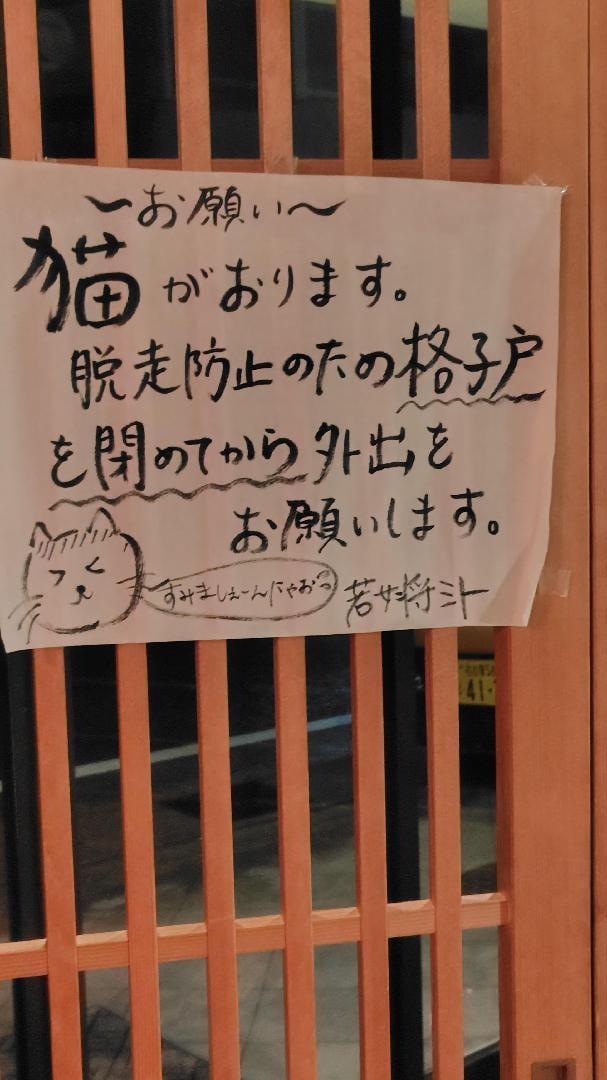 〜お願い〜
猫がおります。
脱走防止のため格子戸
を閉めてから外出を
お願いします。
すみましぇーんにゃおっ
若女将ミケ
41-